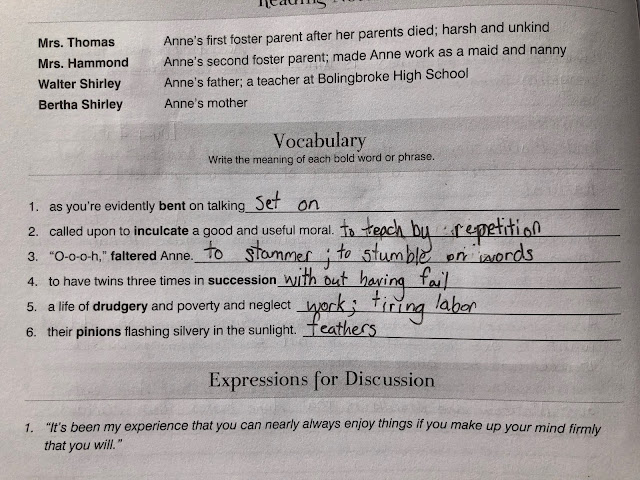 Mrs. Thomas Anne's first foster parent after her parents died; harsh and unkind
Mrs. Hammond Anne's second foster parent; made Anne work as a maid and nanny
Walter Shirley Anne's father; a teacher at Bolingbroke High School
Bertha Shirley Anne's mother
Vocabulary
Write the meaning of each bold word or phrase.
1. as you're evidently bent on talking set on
2. called upon to inculcate a good and useful moral. to teach by repetition
3. "O-o-o-h," faltered Anne. to stammer; to stumble on words
4. to have twins three times in succession with out having fail
5. a life of drudgery and poverty and neglect work; tiring labor
6. their pinions flashing silvery in the sunlight. feathers
Expressions for Discussion
1. "It's been my experience that you can nearly always enjoy things if you make up your mind firmly
that you will."